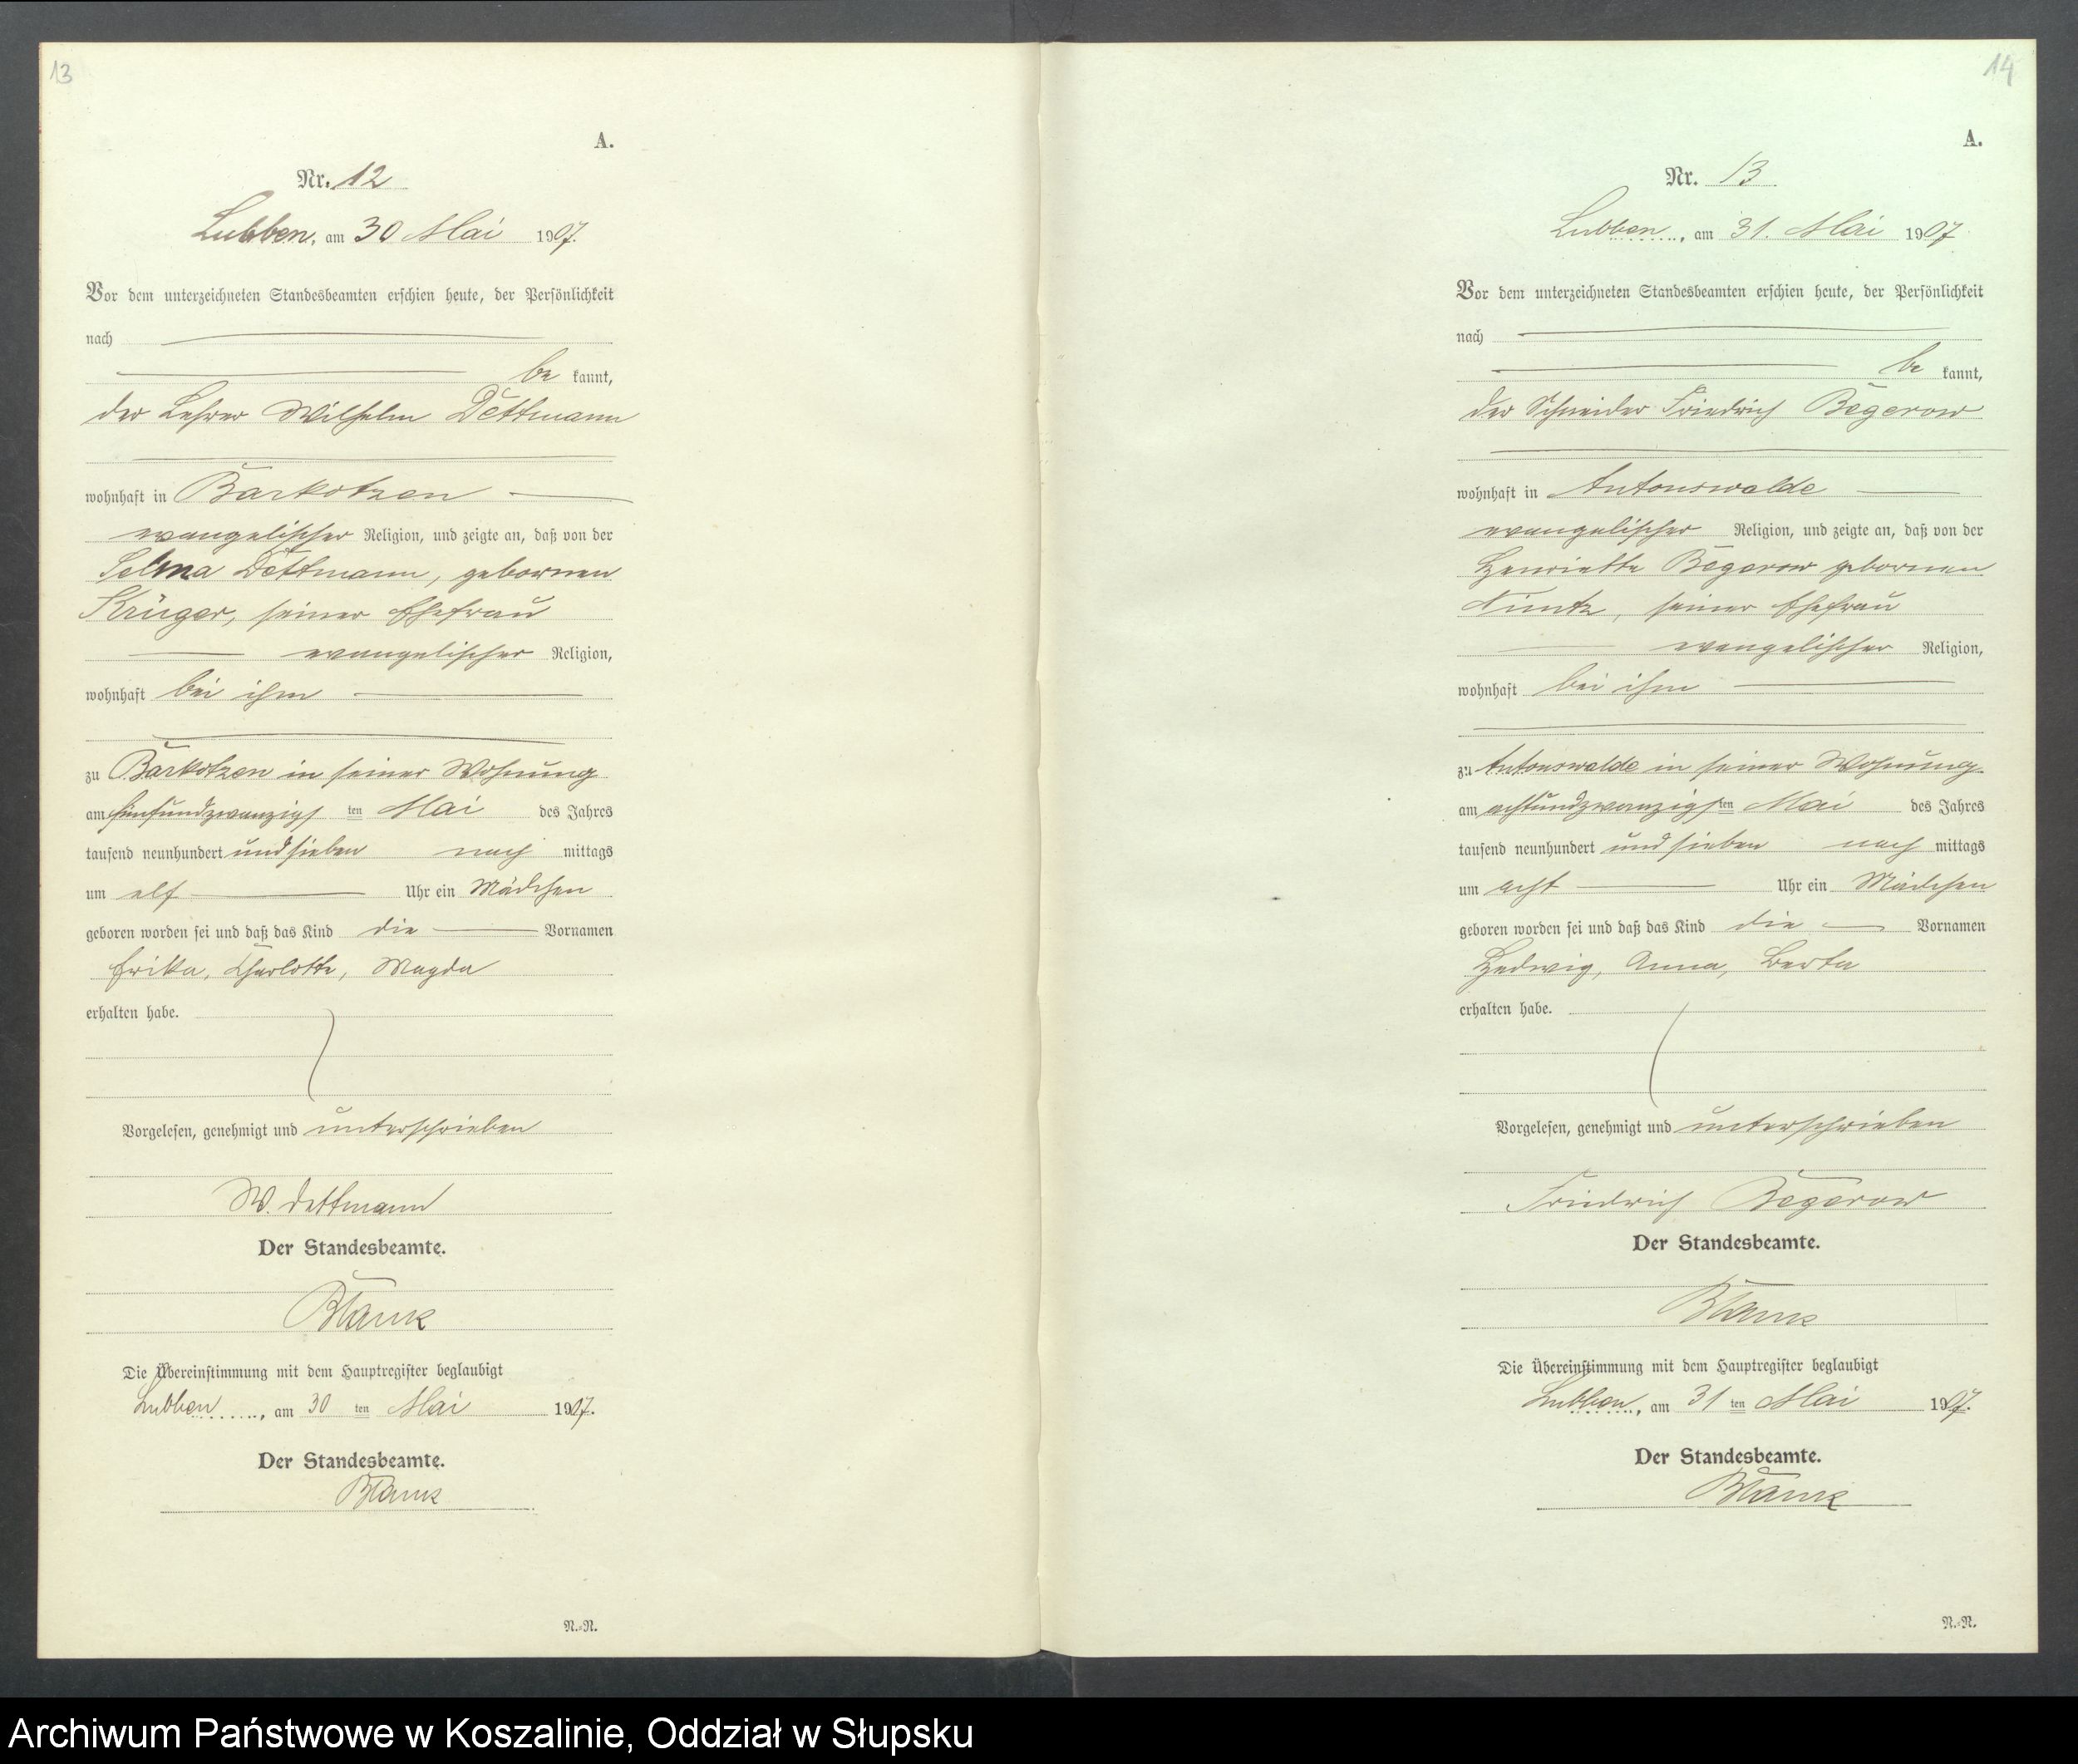 13
A.
Nr. 12
Lubben, am 30 Mai 1907.
Vor dem unterzeichneten Standesbeamten erschien heute, der Persönlichkeit
nach
be kannt,
der Lehrer Wilhelm Dettmann
wohnhaft in Barkotzen
evangelischer Religion, und zeigte an, daß von der
Selma Dettmann, gebornen
Krüger, seiner Ehefrau
evangelischer Religion,
wohnhaft bei ihm
zu Barkotzen in seiner Wohnung
am fünfundzwanzigs ten Mai des Jahres
tausend neunhundert und sieben nach mittags
um elf Uhr ein Mädchen
geboren worden sei und daß das Kind die Vornamen
Erika, Charlotte, Magda
erhalten habe.
Vorgelesen, genehmigt und unterschrieben
W. Dettmann
Der Standesbeamte.
Blank
Die Übereinstimmung mit dem Hauptregister beglaubigt
Lubben, am 30 ten Mai 1907.
Der Standesbeamte.
Blank
N.=N.
14
A.
Nr. 13
Lubben, am 31. Mai 1907
Vor dem unterzeichneten Standesbeamten erschien heute, der Persönlichkeit
nach
be kannt,
der Schneider Friedrich Begerow
wohnhaft in Antonswalde
evangelischer Religion, und zeigte an, daß von der
Henriette Begerow gebornen
seiner Ehefrau
evangelischer Religion,
wohnhaft bei ihm
zu Antonswalde in seiner Wohnung
am achtundzwanzigs ten Mai des Jahres
tausend neunhundert und sieben nach mittags
um acht Uhr ein Mädchen
geboren worden sei und daß das Kind die Vornamen
Hedwig, Anna, Berta
erhalten habe.
Vorgelesen, genehmigt und unterschrieben
Friedrich Begerow
Der Standesbeamte.
Blank
Die Übereinstimmung mit dem Hauptregister beglaubigt
Lubben, am 31 ten Mai 1907.
Der Standesbeamte.
Blank
N.=N.
Archiwum Państwowe w Koszalinie, Oddział w Słupsku